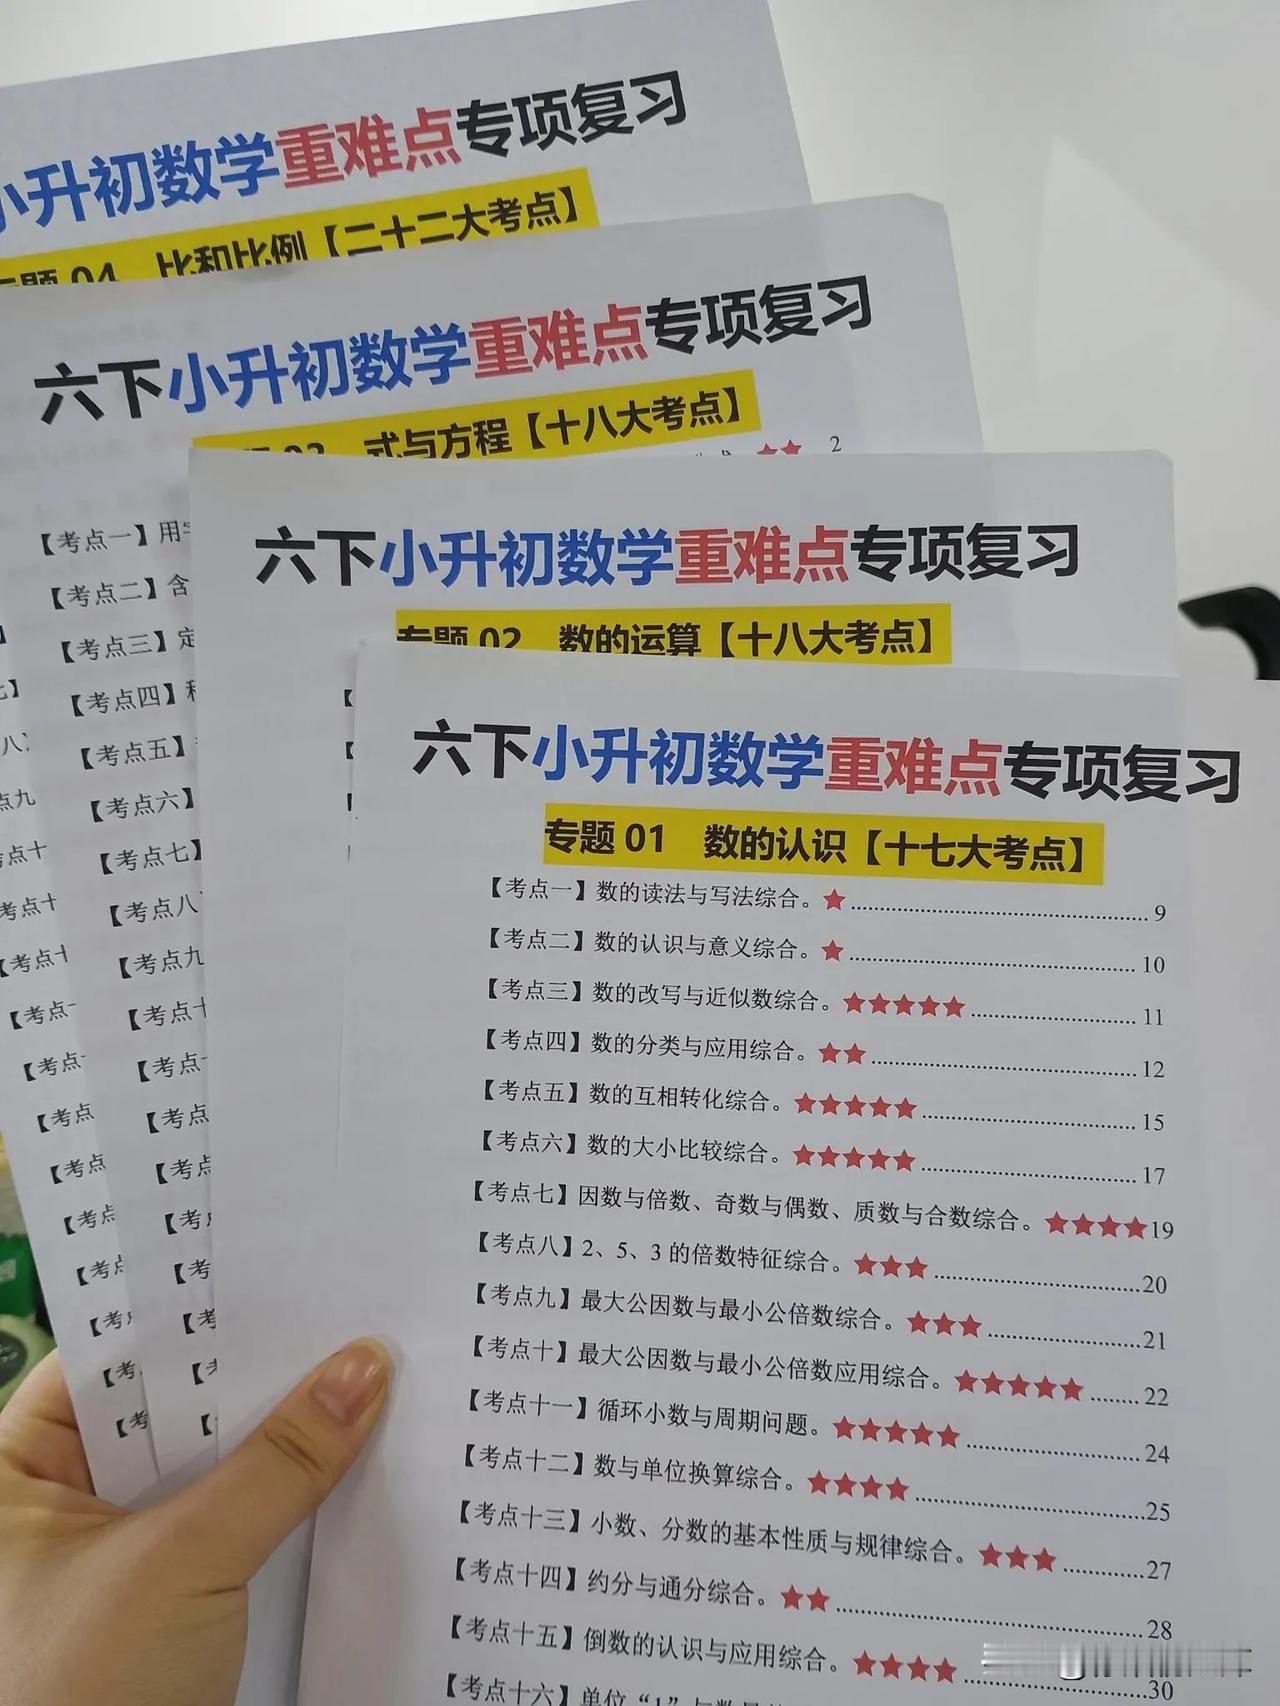 小升初数学重难点专项复习
专题 04 比和比例【二十二大考点】
六下小升初数学重难点专项复习
03 式与方程【十八大考点】
★★ 2
【考点一】用字
【考点二】含
【考点三】定
【考点四】
【考点五】
【考点六】
【考点七】
【考点八】
【考点九
【考点十
【考点十
【考点
【考点
【考点
【考
【考
【考
六下小升初数学重难点专项复习
专题 02 数的运算【十八大考点】
六下小升初数学重难点专项复习
专题 01 数的认识【十七大考点】
【考点一】数的读法与写法综合。★ 9
【考点二】数的认识与意义综合。★ 10
【考点三】数的改写与近似数综合。★★★★★ 11
【考点四】数的分类与应用综合。★★ 12
【考点五】数的互相转化综合。★★★★★ 15
【考点六】数的大小比较综合。★★★★★ 17
【考点七】因数与倍数、奇数与偶数、质数与合数综合。★★★★19
【考点八】2、5、3 的倍数特征综合。★★★ 20
【考点九】最大公因数与最小公倍数综合。★★★ 21
【考点十】最大公因数与最小公倍数应用综合。★★★★★ 22
【考点十一】循环小数与周期问题。★★★★★ 24
【考点十二】数与单位换算综合。★★★★ 25
【考点十三】小数、分数的基本性质与规律综合。★★★ 27
【考点十四】约分与通分综合。★★ 28
【考点十五】倒数的认识与应用综合。★★★★ 30
【考点十六】单位“1”与数量